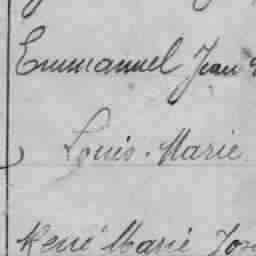 Emmanuel Jean
Louis-Marie
René Marie